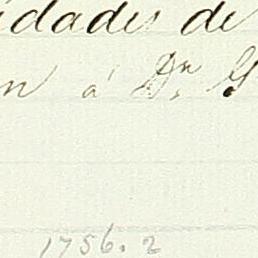 idades de
n á Dn. G
1756. 2